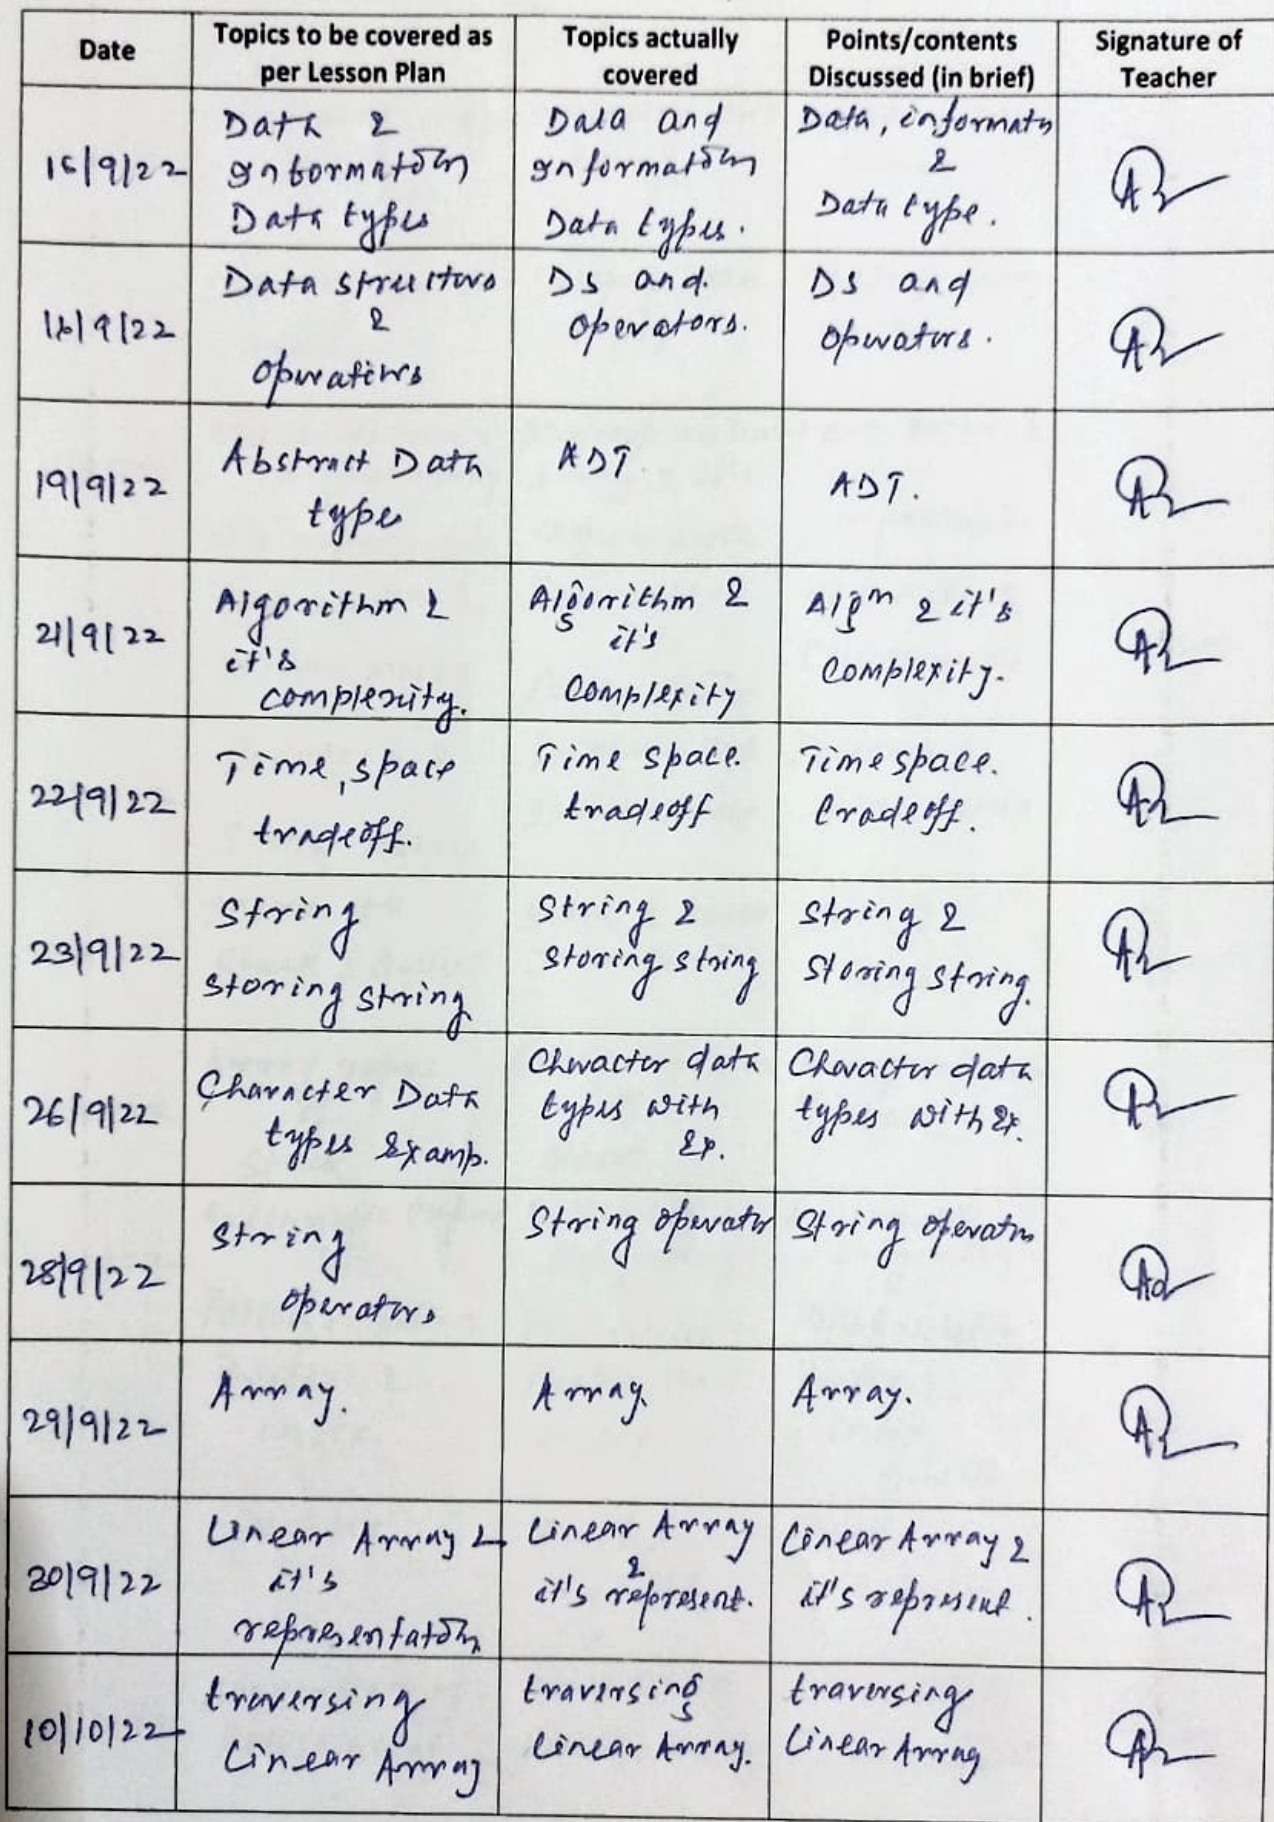 Date
Topics to be covered as
per Lesson Plan
Topics actually
covered
Points/contents
Discussed (in brief)
Signature of
Teacher
15/9/22
Data &
Information
Data types
Data and
Information
Data types.
Data, informatn
&
Data type.
16/9/22
Data structure
&
operations
DS and
operators.
DS and
operators.
19/9/22
Abstract Data
type
ADT
ADT.
21/9/22
Algorithm &
it's
complexity.
Algorithm &
it's
complexity
Algm & it's
complexity.
22/9/22
Time, space
tradeoff.
Time space.
tradeoff
Time space.
tradeoff.
23/9/22
String
storing string
String &
storing string
String &
storing string.
26/9/22
Character Data
types Examp.
Character data
types with
Ex.
Character data
types with Ex.
28/9/22
String
operators
String operator
String operatrs
29/9/22
Array.
Array.
Array.
30/9/22
Linear Array &
it's
representation
Linear Array
&
it's represent.
Linear Array &
it's represent.
10/10/22
traversing
Linear Array
traversing
Linear Array.
traversing
Linear Array